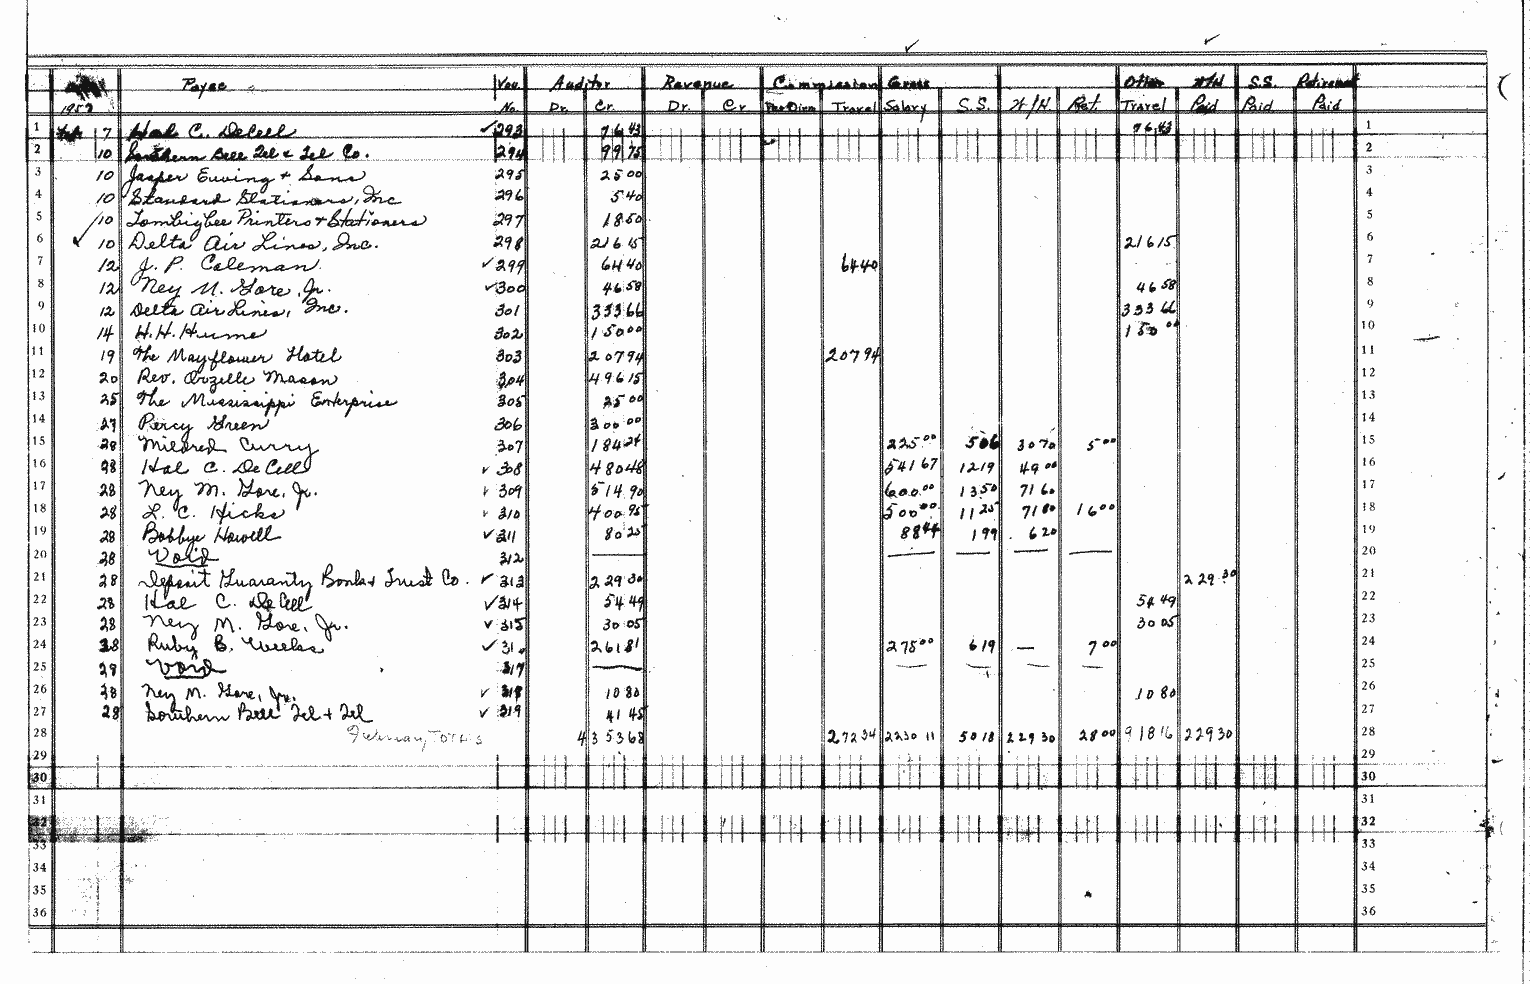 Payee Vou Auditor Revenue Commission Gross Other W/H S.S. Retirement
No. Dr. Cr. Dr. Cr Per Diem Travel Salary S.S. W/H Ret. Travel Paid Paid Paid
1 7 Hal C. DeCell ✓293 76 43 76 43 1
2 10 Southern Bell Tel & Tel Co. 294 99 75 2
3 10 Jasper Ewing & Sons 295 25 00 3
4 10 Standard Stationers, Inc 296 5 40 4
5 10 Tombigbee Printers & Stationers 297 18 50 5
6 ✓ 10 Delta Air Lines, Inc. 298 216 15 216 15 6
7 12 J. P. Coleman ✓299 64 40 64 40 7
8 12 Ney M. Gore, Jr. ✓300 46 58 46 58 8
9 12 Delta Air Lines, Inc. 301 333 66 333 66 9
10 14 H. H. Hume 302 150 00 150 00 10
11 19 The Mayflower Hotel 303 207 94 207 94 11
12 20 Rev. Mason 304 496 15 12
13 25 The Mississippi Enterprise 305 25 00 13
14 27 Percy Green 306 300 00 14
15 28 Mildred Curry 307 184 24 225 00 5 06 30 70 5 00 15
16 28 Hal C. DeCell ✓ 308 480 48 541 67 12 19 49 00 16
17 28 Ney M. Gore, Jr. ✓ 309 514 90 600 00 13 50 71 60 17
18 28 L. C. Hicks ✓ 310 400 95 500 00 11 25 71 80 16 00 18
19 28 Bobbye Howell ✓ 311 80 25 88 44 1 99 6 20 19
20 28 Void 312 — — — — — 20
21 28 Deposit Guaranty Bank & Trust Co. ✓ 313 229 30 229 30 21
22 28 Hal C. DeCell ✓314 54 49 54 49 22
23 28 Ney M. Gore, Jr. ✓ 315 30 05 30 05 23
24 28 Ruby E. Weeks ✓ 31 261 81 275 00 6 19 — 7 00 24
25 28 Void 317 — — — — — 25
26 28 Ney M. Gore, Jr. ✓ 318 10 80 10 80 26
27 28 Southern Bell Tel & Tel ✓ 319 41 45 27
28 February Totals 4353 68 272 34 2230 11 50 18 229 30 28 00 918 16 229 30 28
29 29
30 30
31 31
32 32
33 33
34 34
35 35
36 36